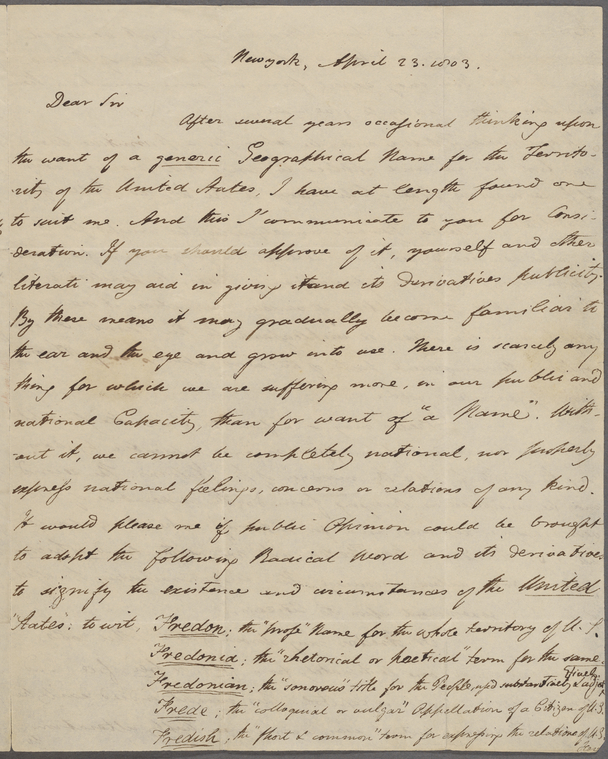 New york, April 23. 1803.
Dear Sir
After several years occasional thinking upon
the want of a generic Geographical Name for the Territo-
rity of the United States, I have at length found one
to suit me. And this I communicate to you for Consi-
deration. If you should approve of it, yourself and other
literati may aid in giving it and its derivatives publicity.
By these means it may gradually become familiar to
the ear and the eye and grow into use. There is scarcely any
thing for which we are suffering more, in our public and
national Capacity, than for want of "a Name". With-
out it, we cannot be completely national, nor properly
express national feelings, concerns or relations of any kind.
It would please me if public Opinion could be brought
to adopt the following Radical Word and its derivatives
to signify the existence and circumstances of the United
States": to wit, Fredon; the "prose" Name for the whole territory of U. S.
Fredonia; the "rhetorical or poetical" term for the same.
Fredonian; the "sonorous" title for the People, used substantively & adjec
tively
Frede; the "colloquial or vulgar" Appellation of a Citizen of U S.
Fredish; the "short & common" term for expressing the relations of U S